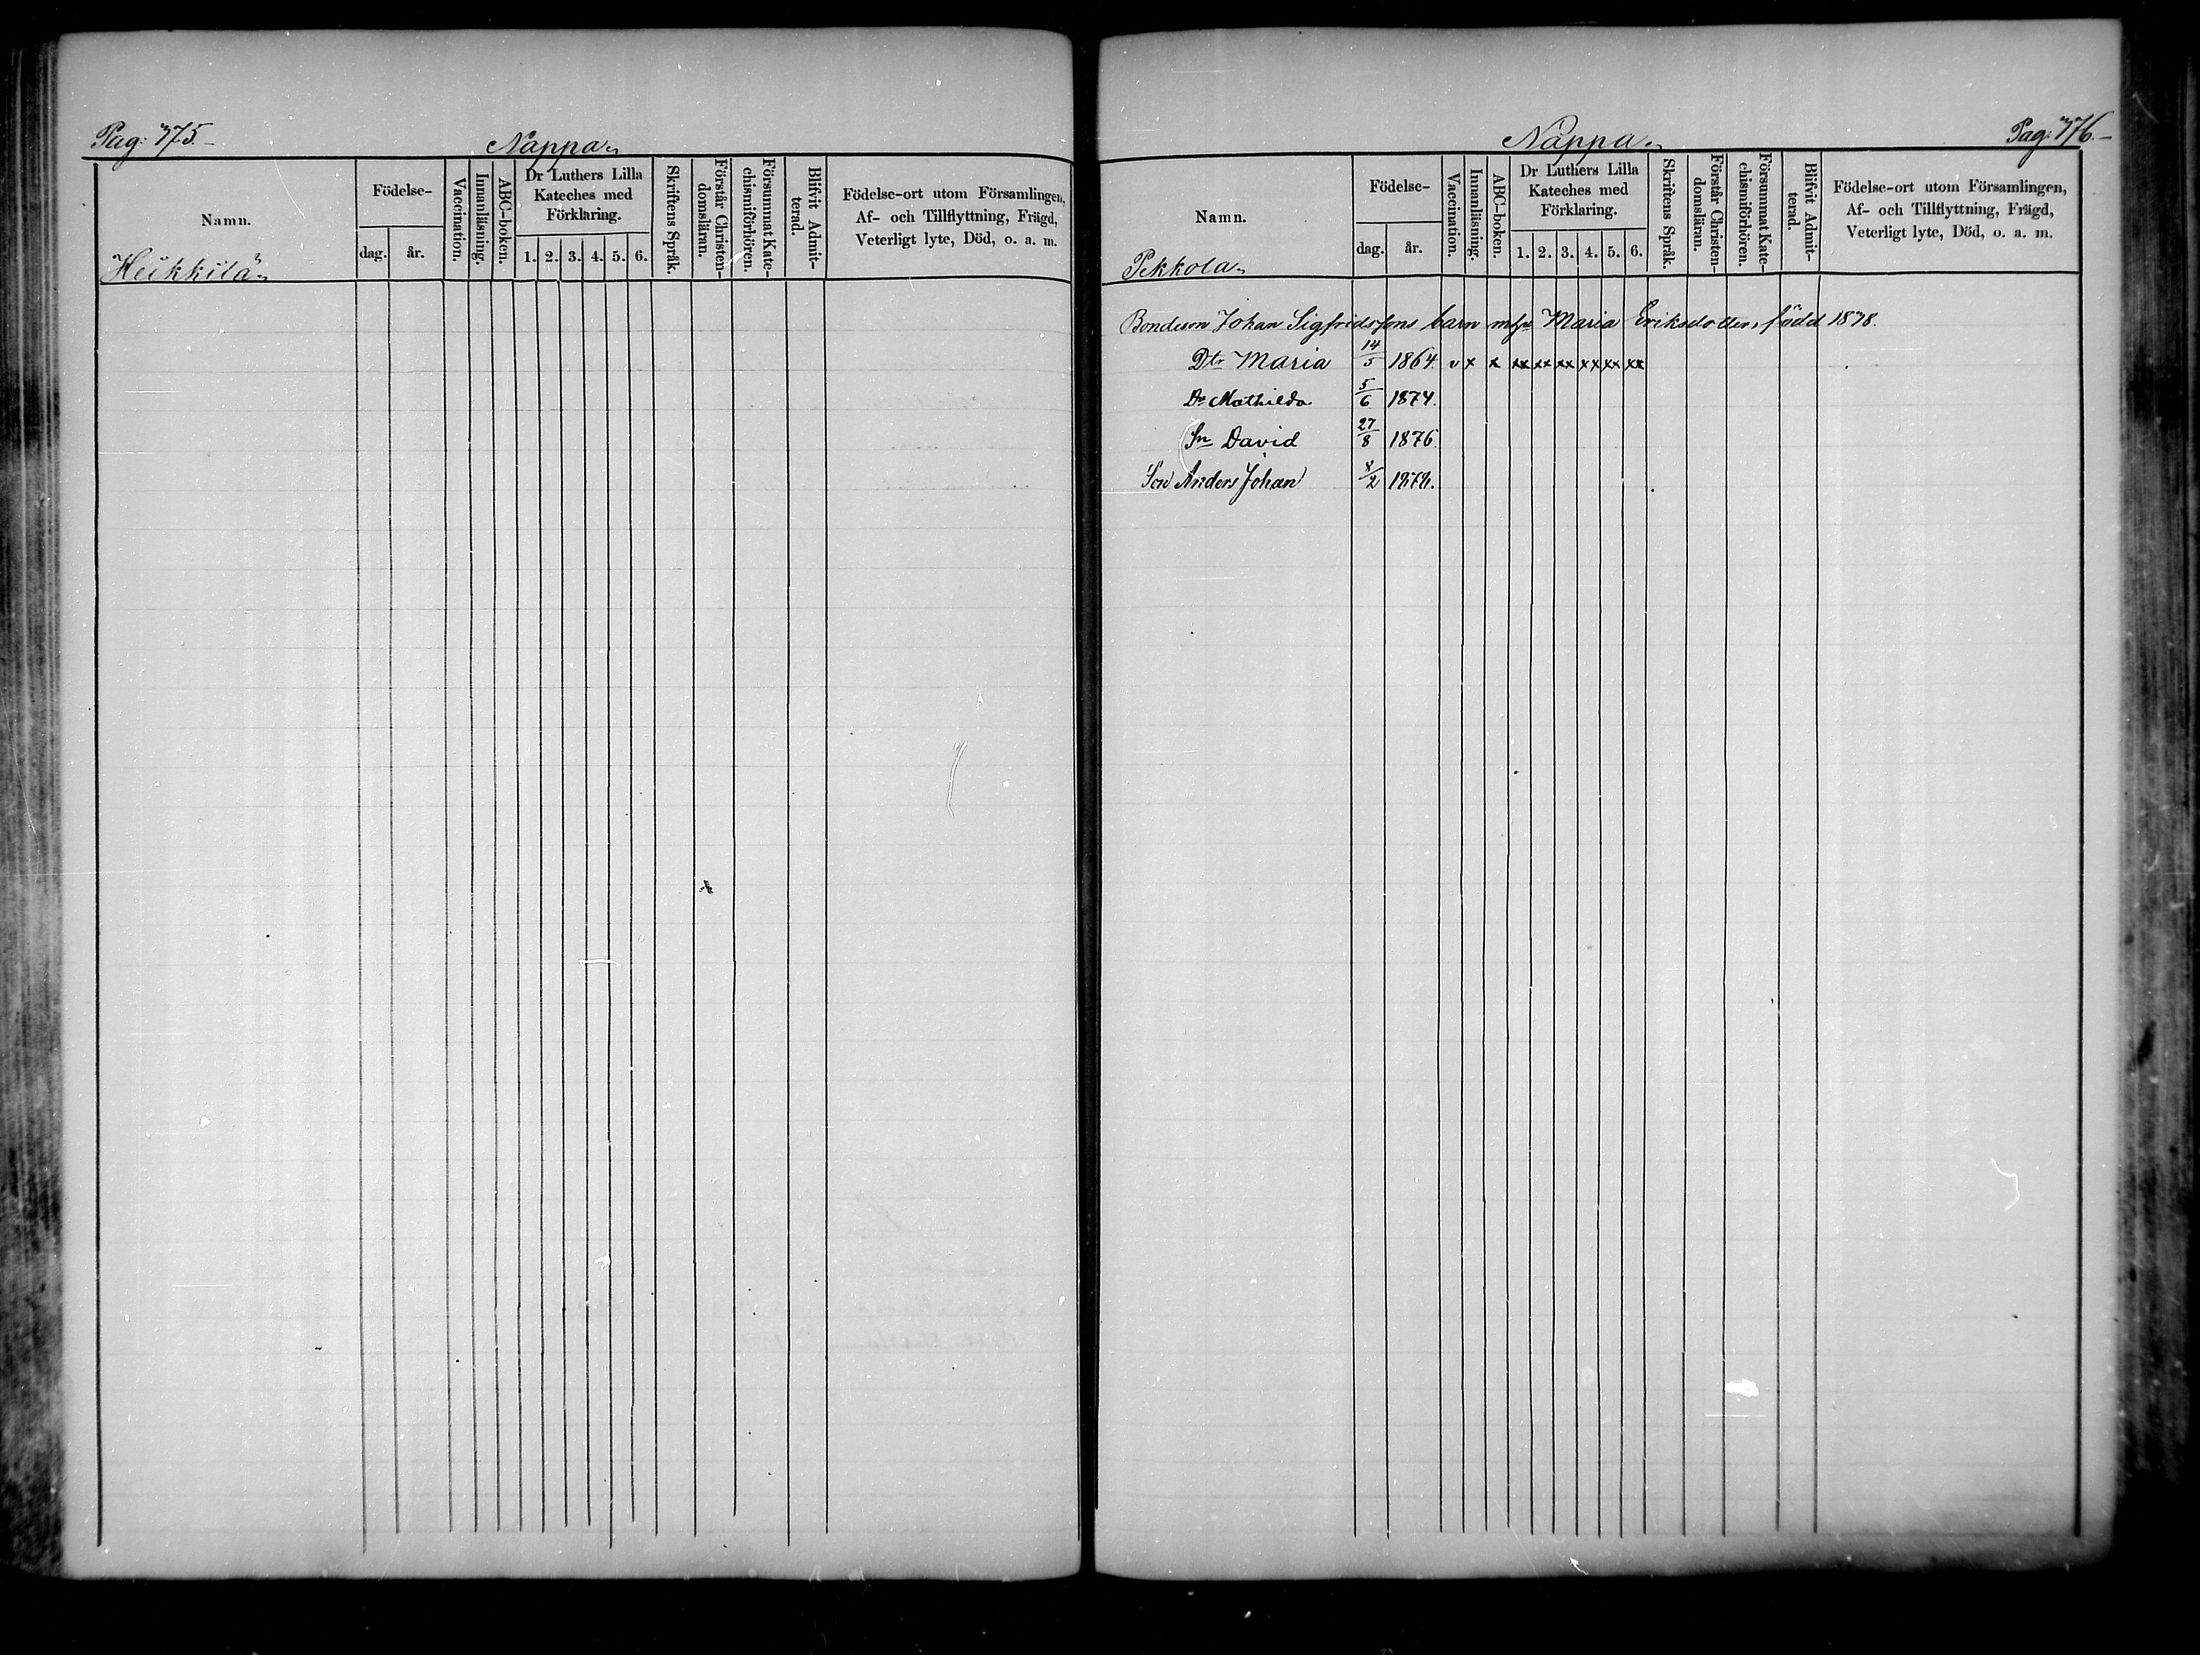 Pag: 775.
Nappa.
Namn.
Födelse-
dag. år.
Vaccination.
Innanläsning.
ABC-boken.
Dr Luthers Lilla
Kateches med
Förklaring.
1. 2. 3. 4. 5. 6.
Skriftens Språk.
Förstår Christen-
domsläran.
Försummat Kate-
chismiförhören.
Blifvit Admit-
terad.
Födelse-ort utom Församlingen,
Af- och Tillflyttning, Frägd,
Veterligt lyte, Död, o. a. m.
Heikkilä
x
Nappa.
Pag: 776.
Namn.
Födelse-
dag. år.
Vaccination.
Innanläsning.
ABC-boken.
Dr Luthers Lilla
Kateches med
Förklaring.
1. 2. 3. 4. 5. 6.
Skriftens Språk.
Förstår Christen-
domsläran.
Försummat Kate-
chismiförhören.
Blifvit Admit-
terad.
Födelse-ort utom Församlingen,
Af- och Tillflyttning, Frägd,
Veterligt lyte, Död, o. a. m.
Pekkola
Bondeson Johan Sigfridssons barn Maria Eriksdotter, född 1878.
Dtr Maria 14/5 1864. v x x xx xx xx xx xx xx
Dr Mathilda 5/6 1874.
Sn David 27/8 1876.
Son Anders Johan 8/2 1878.